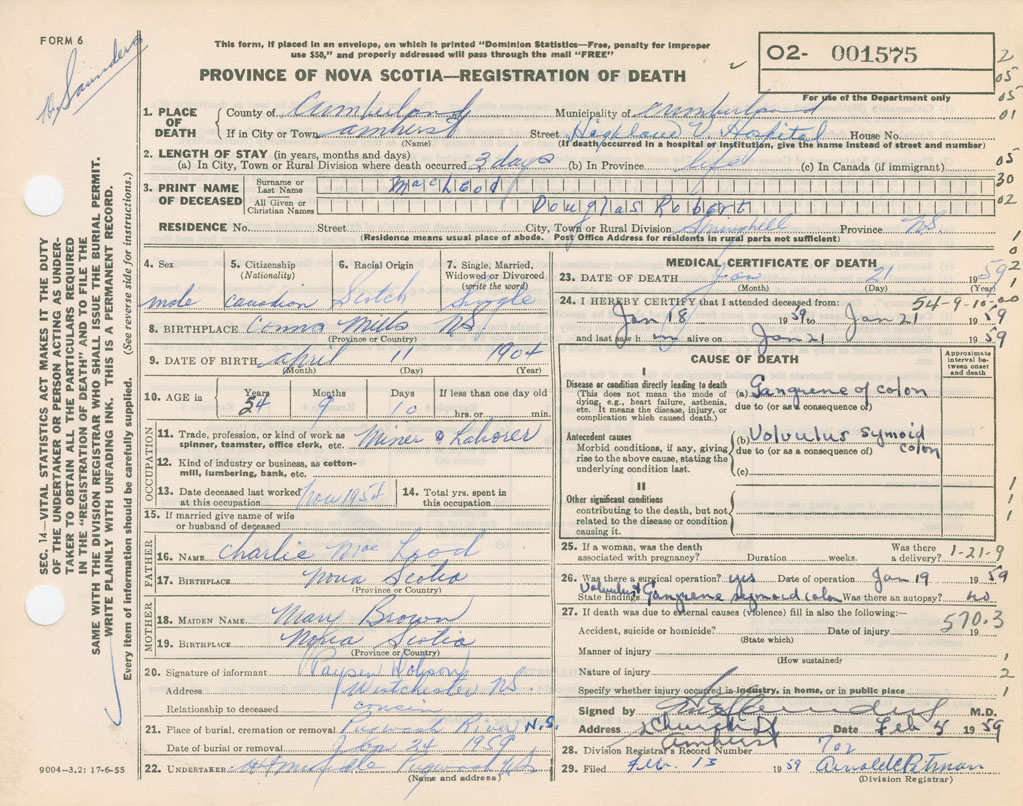 FORM 6
Saunders
This form, if placed in an envelope, on which is printed "Dominion Statistics—Free, penalty for improper
use $50," and properly addressed will pass through the mail "FREE"
PROVINCE OF NOVA SCOTIA—REGISTRATION OF DEATH
O2- 001575
For use of the Department only
2
05
05
01
05
30
02
SEC. 14—VITAL STATISTICS ACT MAKES IT THE DUTY
OF THE UNDERTAKER OR PERSON ACTING AS UNDER-
TAKER TO OBTAIN ALL THE PARTICULARS REQUIRED
IN THE "REGISTRATION OF DEATH" AND TO FILE THE
SAME WITH THE DIVISION REGISTRAR WHO SHALL ISSUE THE BURIAL PERMIT.
WRITE PLAINLY WITH UNFADING INK. THIS IS A PERMANENT RECORD.
Every item of information should be carefully supplied. (See reverse side for instructions.)
1. PLACE OF DEATH
County of Cumberland Municipality of Cumberland
If in City or Town Amherst Street Highland V Hospital House No.
(Name) (If death occurred in a hospital or institution, give the name instead of street and number)
2. LENGTH OF STAY (in years, months and days)
(a) In City, Town or Rural Division where death occurred 3 days (b) In Province life (c) In Canada (if immigrant)
3. PRINT NAME OF DECEASED
Surname or Last Name MacLeod
All Given or Christian Names Douglas Robert
RESIDENCE No. Street City, Town or Rural Division Springhill Province N.S.
(Residence means usual place of abode. Post Office Address for residents in rural parts not sufficient)
4. Sex 5. Citizenship (Nationality) 6. Racial Origin 7. Single, Married, Widowed or Divorced (write the word)
male Canadian Scotch Single
8. BIRTHPLACE Conns Mills NS
(Province or Country)
9. DATE OF BIRTH April 11 1904
(Month) (Day) (Year)
10. AGE in Years Months Days If less than one day old
54 9 10 hrs. or min.
OCCUPATION
11. Trade, profession, or kind of work as spinner, teamster, office clerk, etc. Miner & Laborer
12. Kind of industry or business, as cotton-mill, lumbering, bank, etc.
13. Date deceased last worked at this occupation Nov 1954 14. Total yrs. spent in this occupation
15. If married give name of wife or husband of deceased
FATHER
16. NAME Charlie Mac Leod
17. BIRTHPLACE Nova Scotia
(Province or Country)
MOTHER
18. MAIDEN NAME Mary Brown
19. BIRTHPLACE Nova Scotia
(Province or Country)
20. Signature of informant
Address Westchester NS.
Relationship to deceased cousin
21. Place of burial, cremation or removal Pugwash River N.S.
Date of burial or removal Jan 24 1959
22. UNDERTAKER Pugwash NS
(Name and address)
9004—3.2: 17-6-55
MEDICAL CERTIFICATE OF DEATH
23. DATE OF DEATH Jan 21 1959
(Month) (Day) (Year)
24. I HEREBY CERTIFY that I attended deceased from: 54-9-10-00
Jan 18 1959 to Jan 21 1959
and last saw him alive on Jan 21 1959
CAUSE OF DEATH
Approximate interval between onset and death
I
Disease or condition directly leading to death
(This does not mean the mode of dying, e.g., heart failure, asthenia, etc. It means the disease, injury, or complication which caused death.)
(a) Gangrene of colon
due to (or as a consequence of)
Antecedent causes
Morbid conditions, if any, giving rise to the above cause, stating the underlying condition last.
(b) Volvulus symoid colon
due to (or as a consequence of)
(c)
II
Other significant conditions
contributing to the death, but not related to the disease or condition causing it.
25. If a woman, was the death associated with pregnancy? Duration weeks. Was there a delivery? 1-21-9
26. Was there a surgical operation? yes Date of operation Jan 19 1959
State findings Volvulus & Gangrene symoid colon Was there an autopsy? no
27. If death was due to external causes (violence) fill in also the following:—
570.3
Accident, suicide or homicide? Date of injury 19
(State which)
Manner of injury 1
(How sustained)
Nature of injury 2
Specify whether injury occurred in industry, in home, or in public place 1
Signed by M.D.
Address Church St Amherst Date Feb 5 1959
28. Division Registrar's Record Number 702
29. Filed Feb. 13 1959
(Division Registrar)